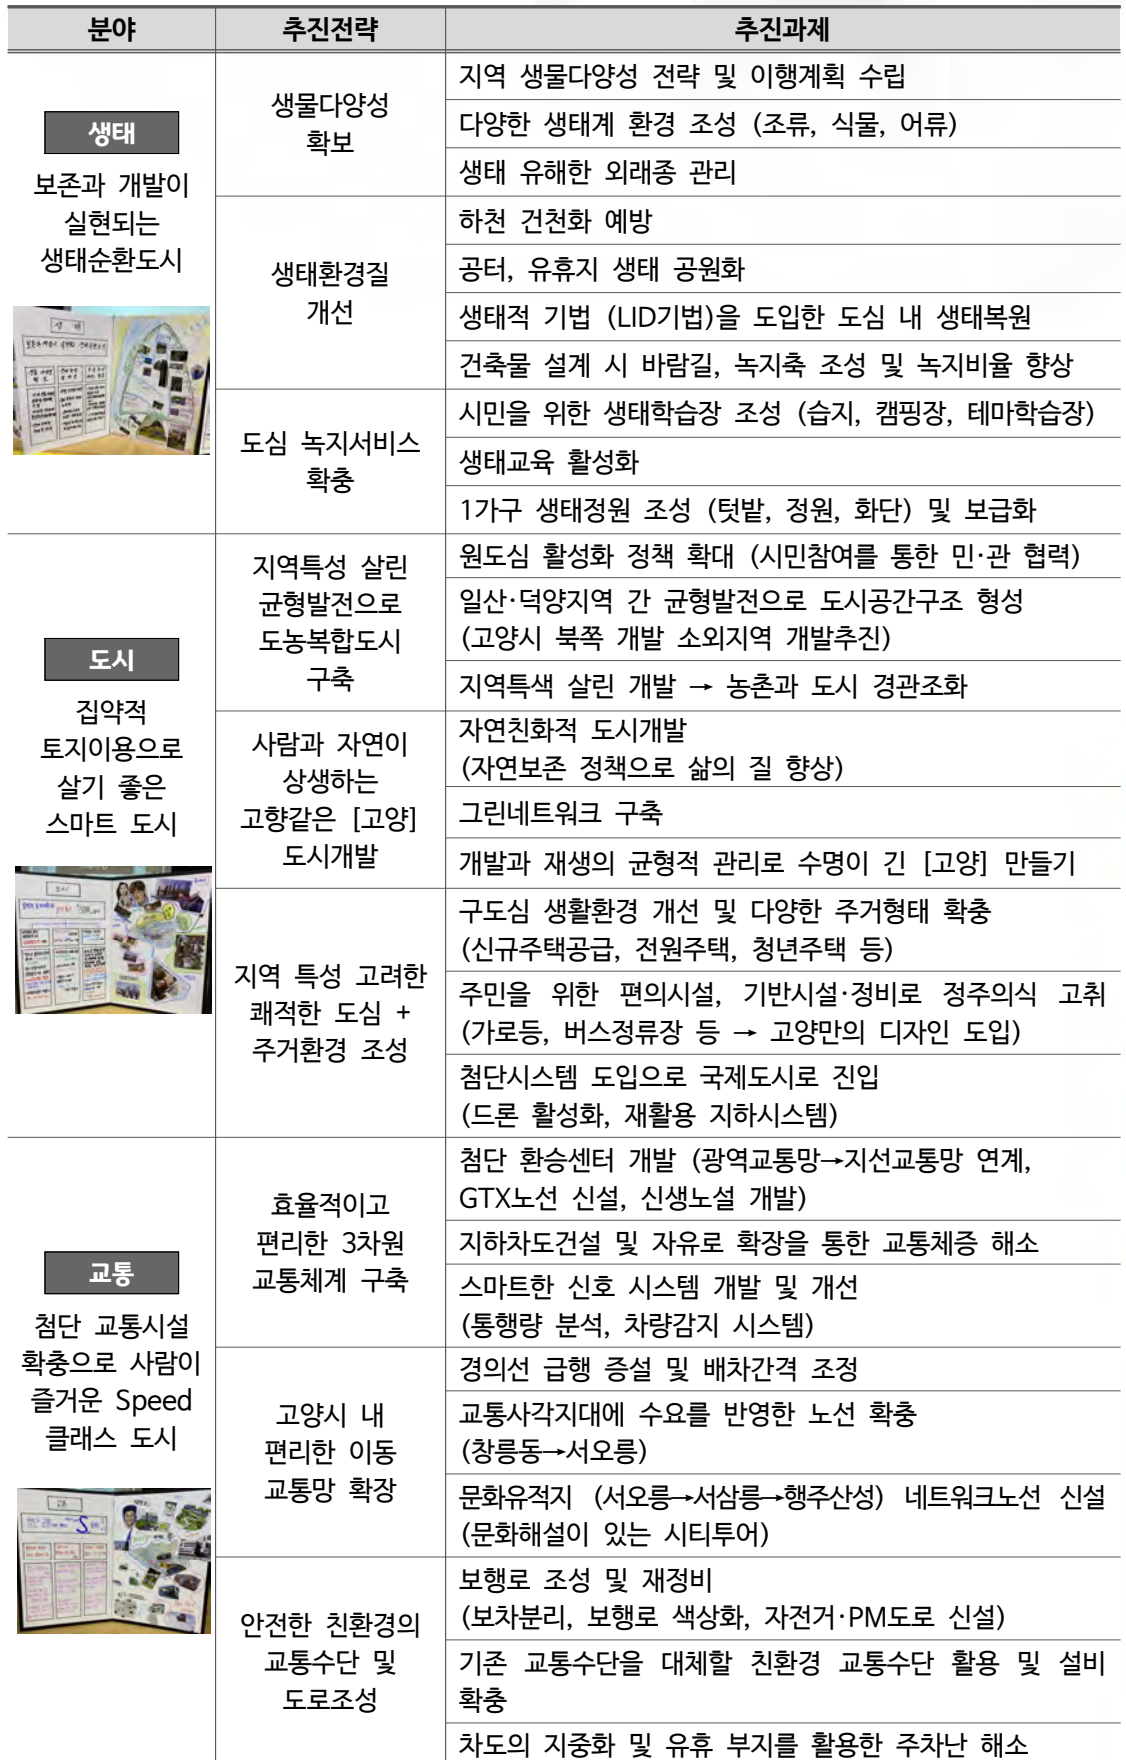 분야 추진전략 추진과제
생태
보존과 개발이
실현되는
생태순환도시
생물다양성
확보
지역 생물다양성 전략 및 이행계획 수립
다양한 생태계 환경 조성 (조류, 식물, 어류)
생태 유해한 외래종 관리
생태환경질
개선
하천 건천화 예방
공터, 유휴지 생태 공원화
생태적 기법 (LID기법)을 도입한 도심 내 생태복원
건축물 설계 시 바람길, 녹지축 조성 및 녹지비율 향상
도심 녹지서비스
확충
시민을 위한 생태학습장 조성 (습지, 캠핑장, 테마학습장)
생태교육 활성화
1가구 생태정원 조성 (텃밭, 정원, 화단) 및 보급화
도시
집약적
토지이용으로
살기 좋은
스마트 도시
지역특성 살린
균형발전으로
도농복합도시
구축
원도심 활성화 정책 확대 (시민참여를 통한 민·관 협력)
일산·덕양지역 간 균형발전으로 도시공간구조 형성
(고양시 북쪽 개발 소외지역 개발추진)
지역특색 살린 개발 → 농촌과 도시 경관조화
사람과 자연이
상생하는
고향같은 [고양]
도시개발
자연친화적 도시개발
(자연보존 정책으로 삶의 질 향상)
그린네트워크 구축
개발과 재생의 균형적 관리로 수명이 긴 [고양] 만들기
지역 특성 고려한
쾌적한 도심 +
주거환경 조성
구도심 생활환경 개선 및 다양한 주거형태 확충
(신규주택공급, 전원주택, 청년주택 등)
주민을 위한 편의시설, 기반시설·정비로 정주의식 고취
(가로등, 버스정류장 등 → 고양만의 디자인 도입)
첨단시스템 도입으로 국제도시로 진입
(드론 활성화, 재활용 지하시스템)
교통
첨단 교통시설
확충으로 사람이
즐거운 Speed
클래스 도시
효율적이고
편리한 3차원
교통체계 구축
첨단 환승센터 개발 (광역교통망→지선교통망 연계,
GTX노선 신설, 신생노설 개발)
지하차도건설 및 자유로 확장을 통한 교통체증 해소
스마트한 신호 시스템 개발 및 개선
(통행량 분석, 차량감지 시스템)
고양시 내
편리한 이동
교통망 확장
경의선 급행 증설 및 배차간격 조정
교통사각지대에 수요를 반영한 노선 확충
(창릉동→서오릉)
문화유적지 (서오릉→서삼릉→행주산성) 네트워크노선 신설
(문화해설이 있는 시티투어)
안전한 친환경의
교통수단 및
도로조성
보행로 조성 및 재정비
(보차분리, 보행로 색상화, 자전거·PM도로 신설)
기존 교통수단을 대체할 친환경 교통수단 활용 및 설비
확충
차도의 지중화 및 유휴 부지를 활용한 주차난 해소